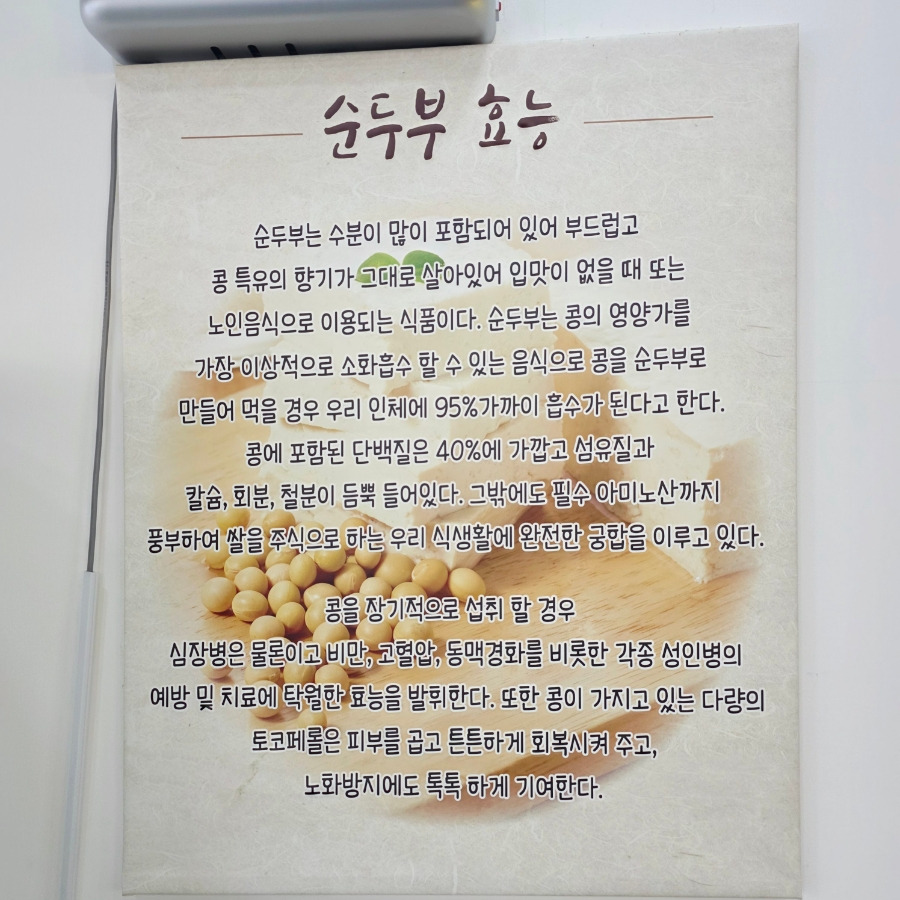 순두부 효능
순두부는 수분이 많이 포함되어 있어 부드럽고
콩 특유의 향기가 그대로 살아있어 입맛이 없을 때 또는
노인음식으로 이용되는 식품이다. 순두부는 콩의 영양가를
가장 이상적으로 소화흡수 할 수 있는 음식으로 콩을 순두부로
만들어 먹을 경우 우리 인체에 95%가까이 흡수가 된다고 한다.
콩에 포함된 단백질은 40%에 가깝고 섬유질과
칼슘, 회분, 철분이 듬뿍 들어있다. 그밖에도 필수 아미노산까지
풍부하여 쌀을 주식으로 하는 우리 식생활에 완전한 궁합을 이루고 있다.
콩을 장기적으로 섭취 할 경우
심장병은 물론이고 비만, 고혈압, 동맥경화를 비롯한 각종 성인병의
예방 및 치료에 탁월한 효능을 발휘한다. 또한 콩이 가지고 있는 다량의
토코페롤은 피부를 곱고 튼튼하게 회복시켜 주고,
노화방지에도 톡톡 하게 기여한다.